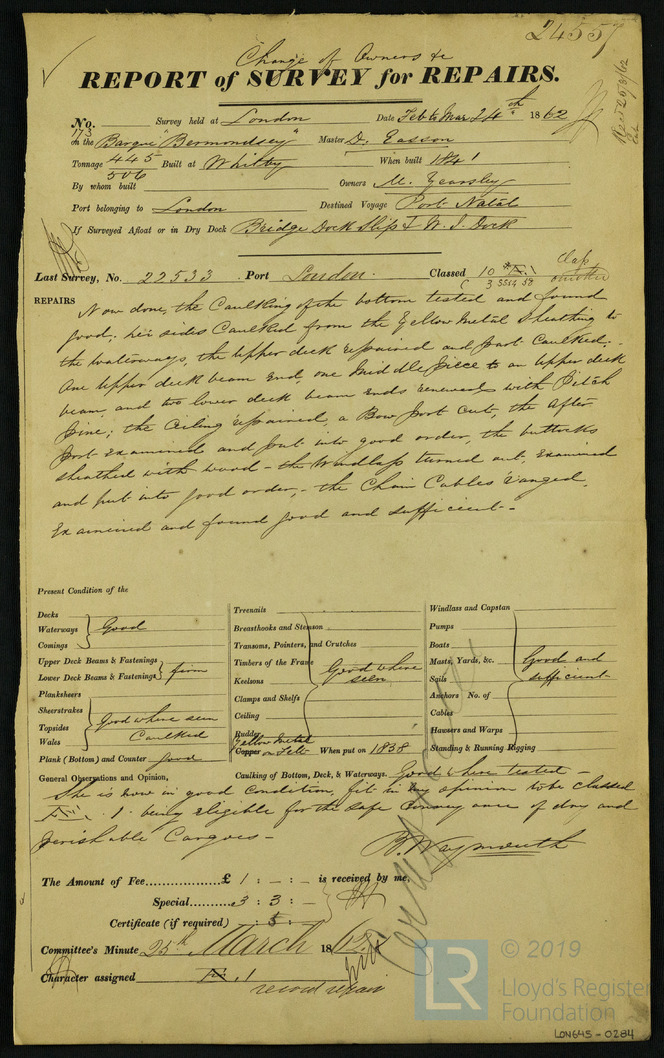 24557
Change of Owners &c
REPORT of SURVEY for REPAIRS.
No. 173 Survey held at London Date Feb & Mar 24th 1862
on the Barque "Bermondsey" Master D. Easson
Tonnage 445 506 Built at Whitby When built 1841
By whom built Owners M. Yearsley
Port belonging to London Destined Voyage Port Natal
If Surveyed Afloat or in Dry Dock Bridge Dock Slip & W. I. Dock
Last Survey, No. 22533 Port London. Classed 10
REPAIRS
Now done, the Caulking of the bottom tested and found
good; her sides Caulked from the Yellow Metal Sheathing to
the waterways, the upper deck repaired and part Caulked.
One upper deck beam End, one Middle piece to an upper deck
beam, and two lower deck beam Ends renewed with Pitch
Pine; the Ceiling repaired, a Bow port Cut, the After
Port Examined and put into good order, the buttocks
sheathed with wood - the Windlass turned out, Examined
and put into good order, - the Chain Cables ranged,
Examined and found good and sufficient -
Present Condition of the
Decks
Waterways Good
Comings
Upper Deck Beams & Fastenings firm
Lower Deck Beams & Fastenings
Planksheers
Sheerstrakes
Topsides Good where seen
Wales Caulked
Plank (Bottom) and Counter good
Treenails
Breasthooks and Stemson
Transoms, Pointers, and Crutches
Timbers of the Frame Good where
Keelsons seen
Clamps and Shelfs
Ceiling
Rudder
Yellow Metal
Copper on Felt When put on 1858
Windlass and Capstan
Pumps
Boats
Masts, Yards, &c. Good and
Sails sufficient
Anchors No. of
Cables
Hawsers and Warps
Standing & Running Rigging
Caulking of Bottom, Deck, & Waterways. Good where tested -
General Observations and Opinion,
She is now in good condition, fit in my opinion to be classed
1. being eligible for the safe Conveyance of dry and
perishable Cargoes -
B. Waymouth
The Amount of Fee £ 1 : - : - is received by me,
Special 3 : 3 : -
Certificate (if required) : 5 :
Committee's Minute 25th March 1862
Character assigned 1
record repair
LR
© 2019
Lloyd's Register
Foundation
LON645-0284